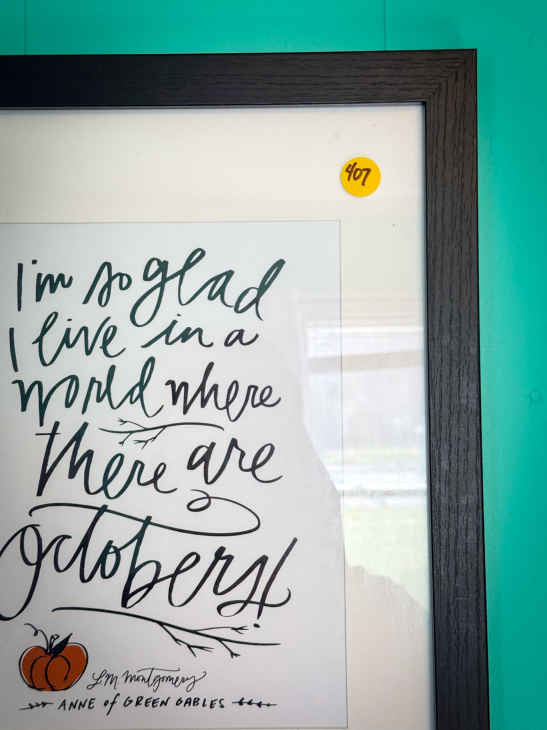 407
I'm so glad
I live in a
world where
there are
Octobers!
LM Montgomery
ANNE of GREEN GABLES